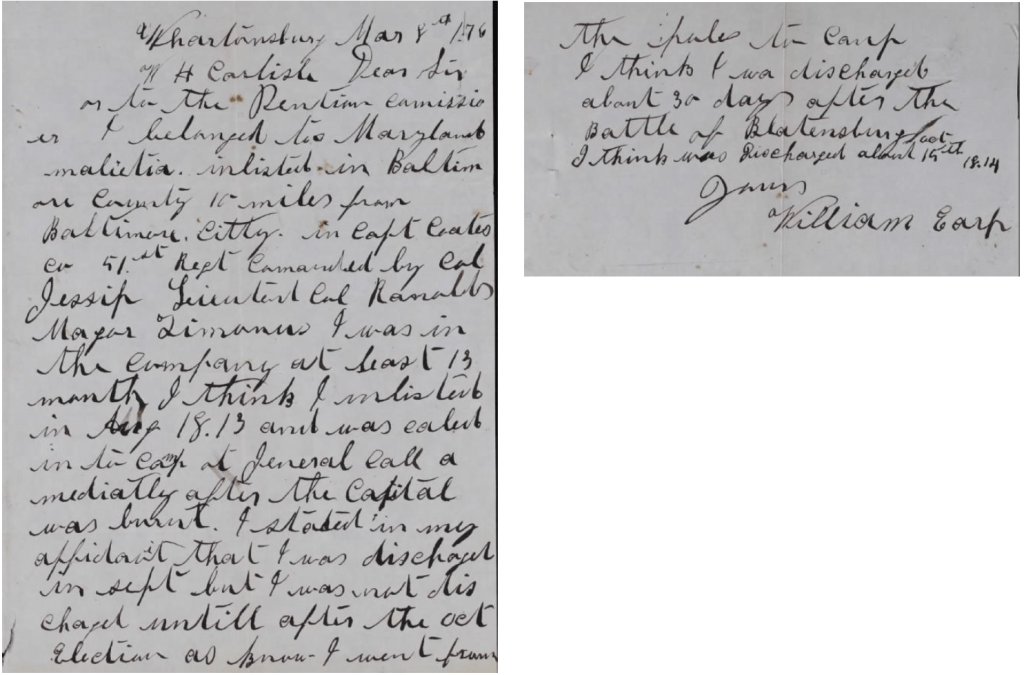 Whartonsburg Mar 8th 1876
W H Carlisle Dear Sir
as to the Pention comissio
er I belonged to Maryland
malietia. inlisted in Baltim
ore County 10 miles from
Baltimore. Citty. in Capt Coates
co 51.st Regt Comanded by Col
Jessip Lieutent Col Ranalds
Magor Timanus I was in
the company at least 13
month I think I inlisted
in Aug 18.13 and was caled
in to camp at Jeneral Call a
mediatly after the Capital
was burnt. I stated in my
affidavit that I was dischaged
in sept but I was not dis
chaged untill after the oct
Election as know I went from
the poles to Camp
I think I wa discharged
about 30 days after the
Battle of Blatensburg
I think was Discharged about oct 15th 18.14
Yours
William Earp